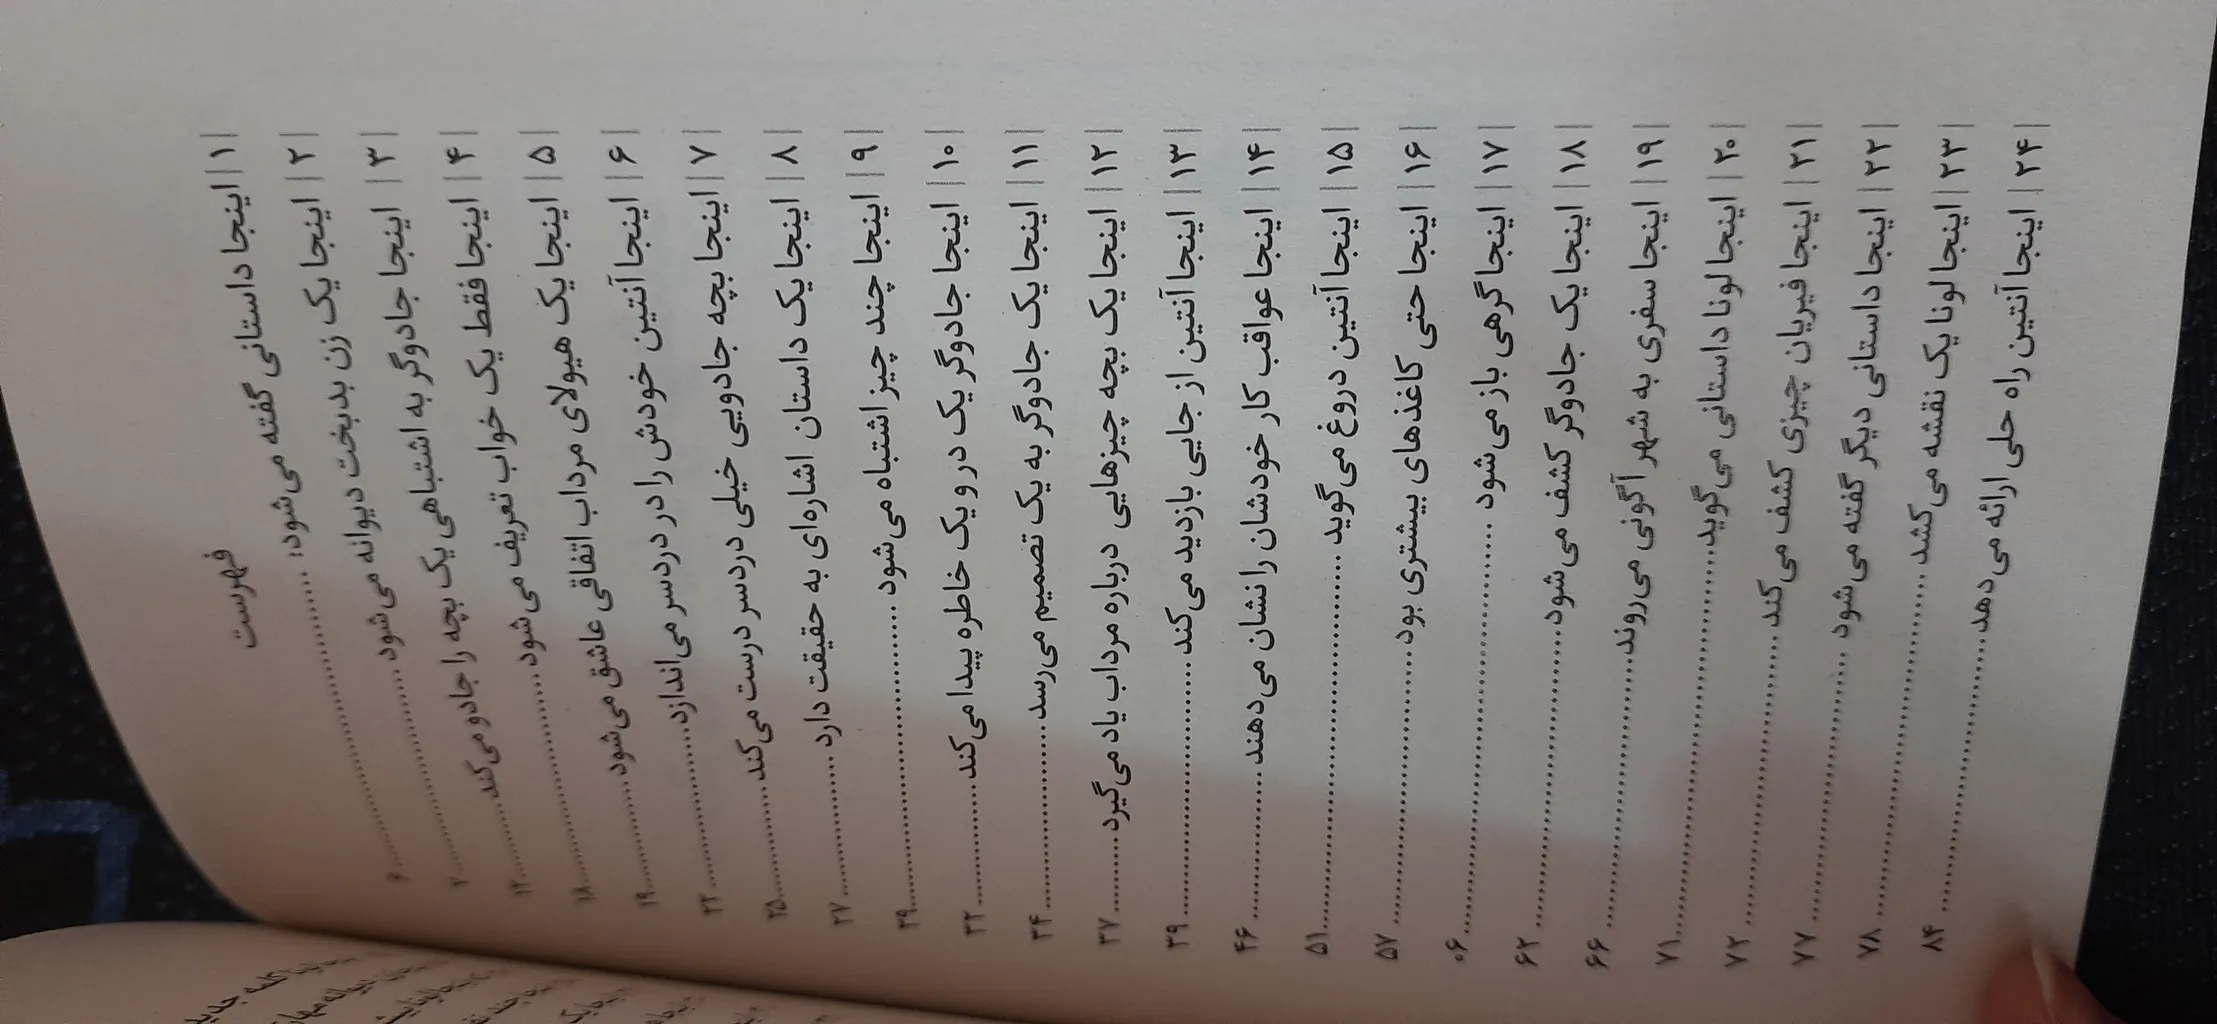 فهرست
|۱| اینجا داستانی گفته می‌شود: ........ ۶
|۲| اینجا یک زن بدبخت دیوانه می‌شود ........ ۷
|۳| اینجا جادوگر به اشتباهی یک بچه را جادو می‌کند ........ ۱۲
|۴| اینجا فقط یک خواب تعریف می‌شود ........ ۱۸
|۵| اینجا یک هیولای مرداب اتفاقی عاشق می‌شود ........ ۱۹
|۶| اینجا آنتین خودش را در دردسر می‌اندازد ........ ۲۲
|۷| اینجا بچه جادویی خیلی دردسر درست می‌کند ........ ۲۵
|۸| اینجا یک داستان اشاره‌ای به حقیقت دارد ........ ۲۷
|۹| اینجا چند چیز اشتباه می‌شود ........ ۲۹
|۱۰| اینجا جادوگر یک در و یک خاطره پیدا می‌کند ........ ۳۲
|۱۱| اینجا یک جادوگر به یک تصمیم می‌رسد ........ ۳۴
|۱۲| اینجا یک بچه چیزهایی درباره مرداب یاد می‌گیرد ........ ۳۷
|۱۳| اینجا آنتین از جایی بازدید می‌کند ........ ۳۹
|۱۴| اینجا عواقب کار خودشان را نشان می‌دهند ........ ۴۶
|۱۵| اینجا آنتین دروغ می‌گوید ........ ۵۱
|۱۶| اینجا حتی کاغذهای بیشتری بود ........ ۵۷
|۱۷| اینجا گرهی باز می‌شود ........ ۰۶
|۱۸| اینجا یک جادوگر کشف می‌شود ........ ۶۲
|۱۹| اینجا سفری به شهر آگونی می‌روند ........ ۶۶
|۲۰| اینجا لونا داستانی می‌گوید ........ ۷۱
|۲۱| اینجا فیریان چیزی کشف می‌کند ........ ۷۲
|۲۲| اینجا داستانی دیگر گفته می‌شود ........ ۷۷
|۲۳| اینجا لونا یک نقشه می‌کشد ........ ۷۸
|۲۴| اینجا آنتین راه حلی ارائه می‌دهد ........ ۸۴